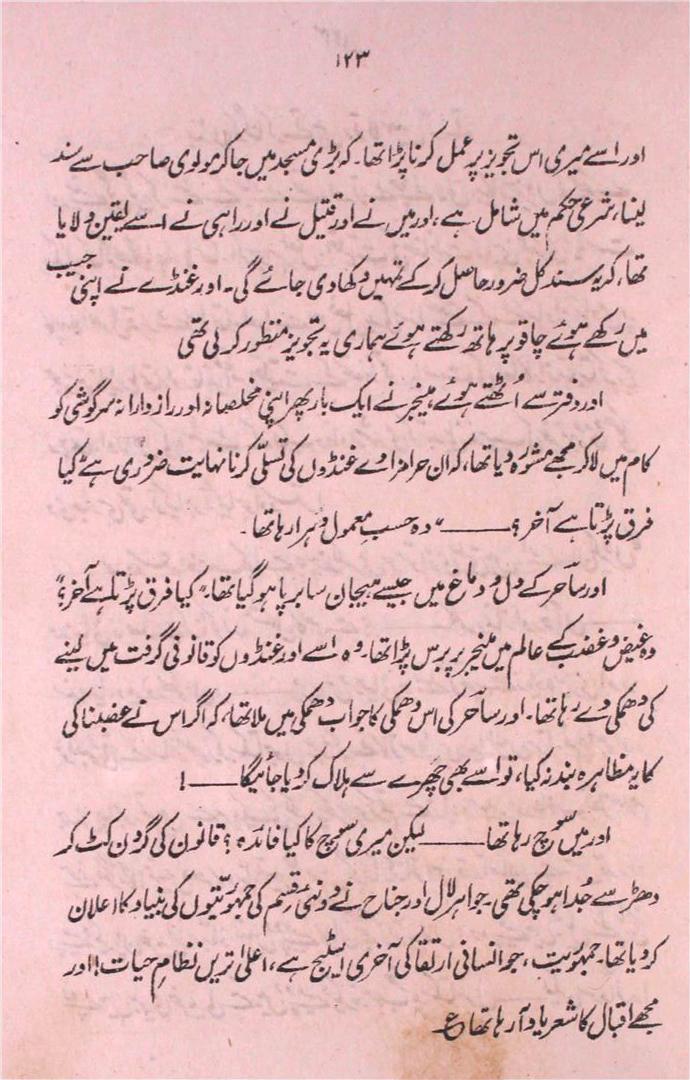 ۱۲۳
اور اسے میری اس تجویز پر عمل کرنا پڑا تھا۔ کہ بڑی مسجد میں جا کر مولوی صاحب سے سند
لینا، شرعی حکم میں شامل ہے، اور میں نے اور قتیل نے اور راہی نے اسے یقین دلایا
تھا، کہ یہ سند کل ضرور حاصل کر کے تمہیں دکھا دی جائے گی۔ اور غنڈے نے اپنی جیب
میں رکھے ہوئے چاقو پر ہاتھ رکھتے ہوئے ہماری یہ تجویز منظور کر لی تھی
اور دفتر سے اُٹھتے ہوئے مینجر نے ایک بار پھر اپنی مخلصانہ اور رازدارانہ سرگوشی کو
کام میں لا کر مجھے مشورہ دیا تھا، کہ ان حرامزادے غنڈوں کی تسلّی کرنا نہایت ضروری ہے کیا
فرق پڑتا ہے آخر؟ ——— “ وہ حسبِ معمول دہرا رہا تھا۔
اور ساحر کے دل و دماغ میں جیسے ہیجان سا برپا ہو گیا تھا۔ ”کیا فرق پڑتا ہے آخر؟“
وہ غیض و غضب کے عالم میں منیجر پر برس پڑا تھا۔ وہ اسے اور غنڈوں کو قانونی گرفت میں لینے
کی دھمکی دے رہا تھا۔ اور ساحر کی اس دھمکی کا جواب دھمکی میں ملا تھا، کہ اگر اس نے غضبناکی
کا یہ مظاہرہ بند نہ کیا، تو اسے بھی چھرے سے ہلاک کر دیا جائیگا —— !
اور میں سوچ رہا تھا ——— لیکن میری سوچ کا کیا فائدہ؟ قانون کی گردن کٹ کر
دھڑ سے جُدا ہو چکی تھی۔ جواہر لال اور جناح نے دو نئی قسم کی جمہوریتوں کی بنیاد کا اعلان
کر دیا تھا۔ جمہوریت، جو انسانی ارتقا کی آخری اسٹیج ہے، اعلیٰ ترین نظامِ حیات! اور
مجھے اقبال کا شعر یاد آ رہا تھا ع